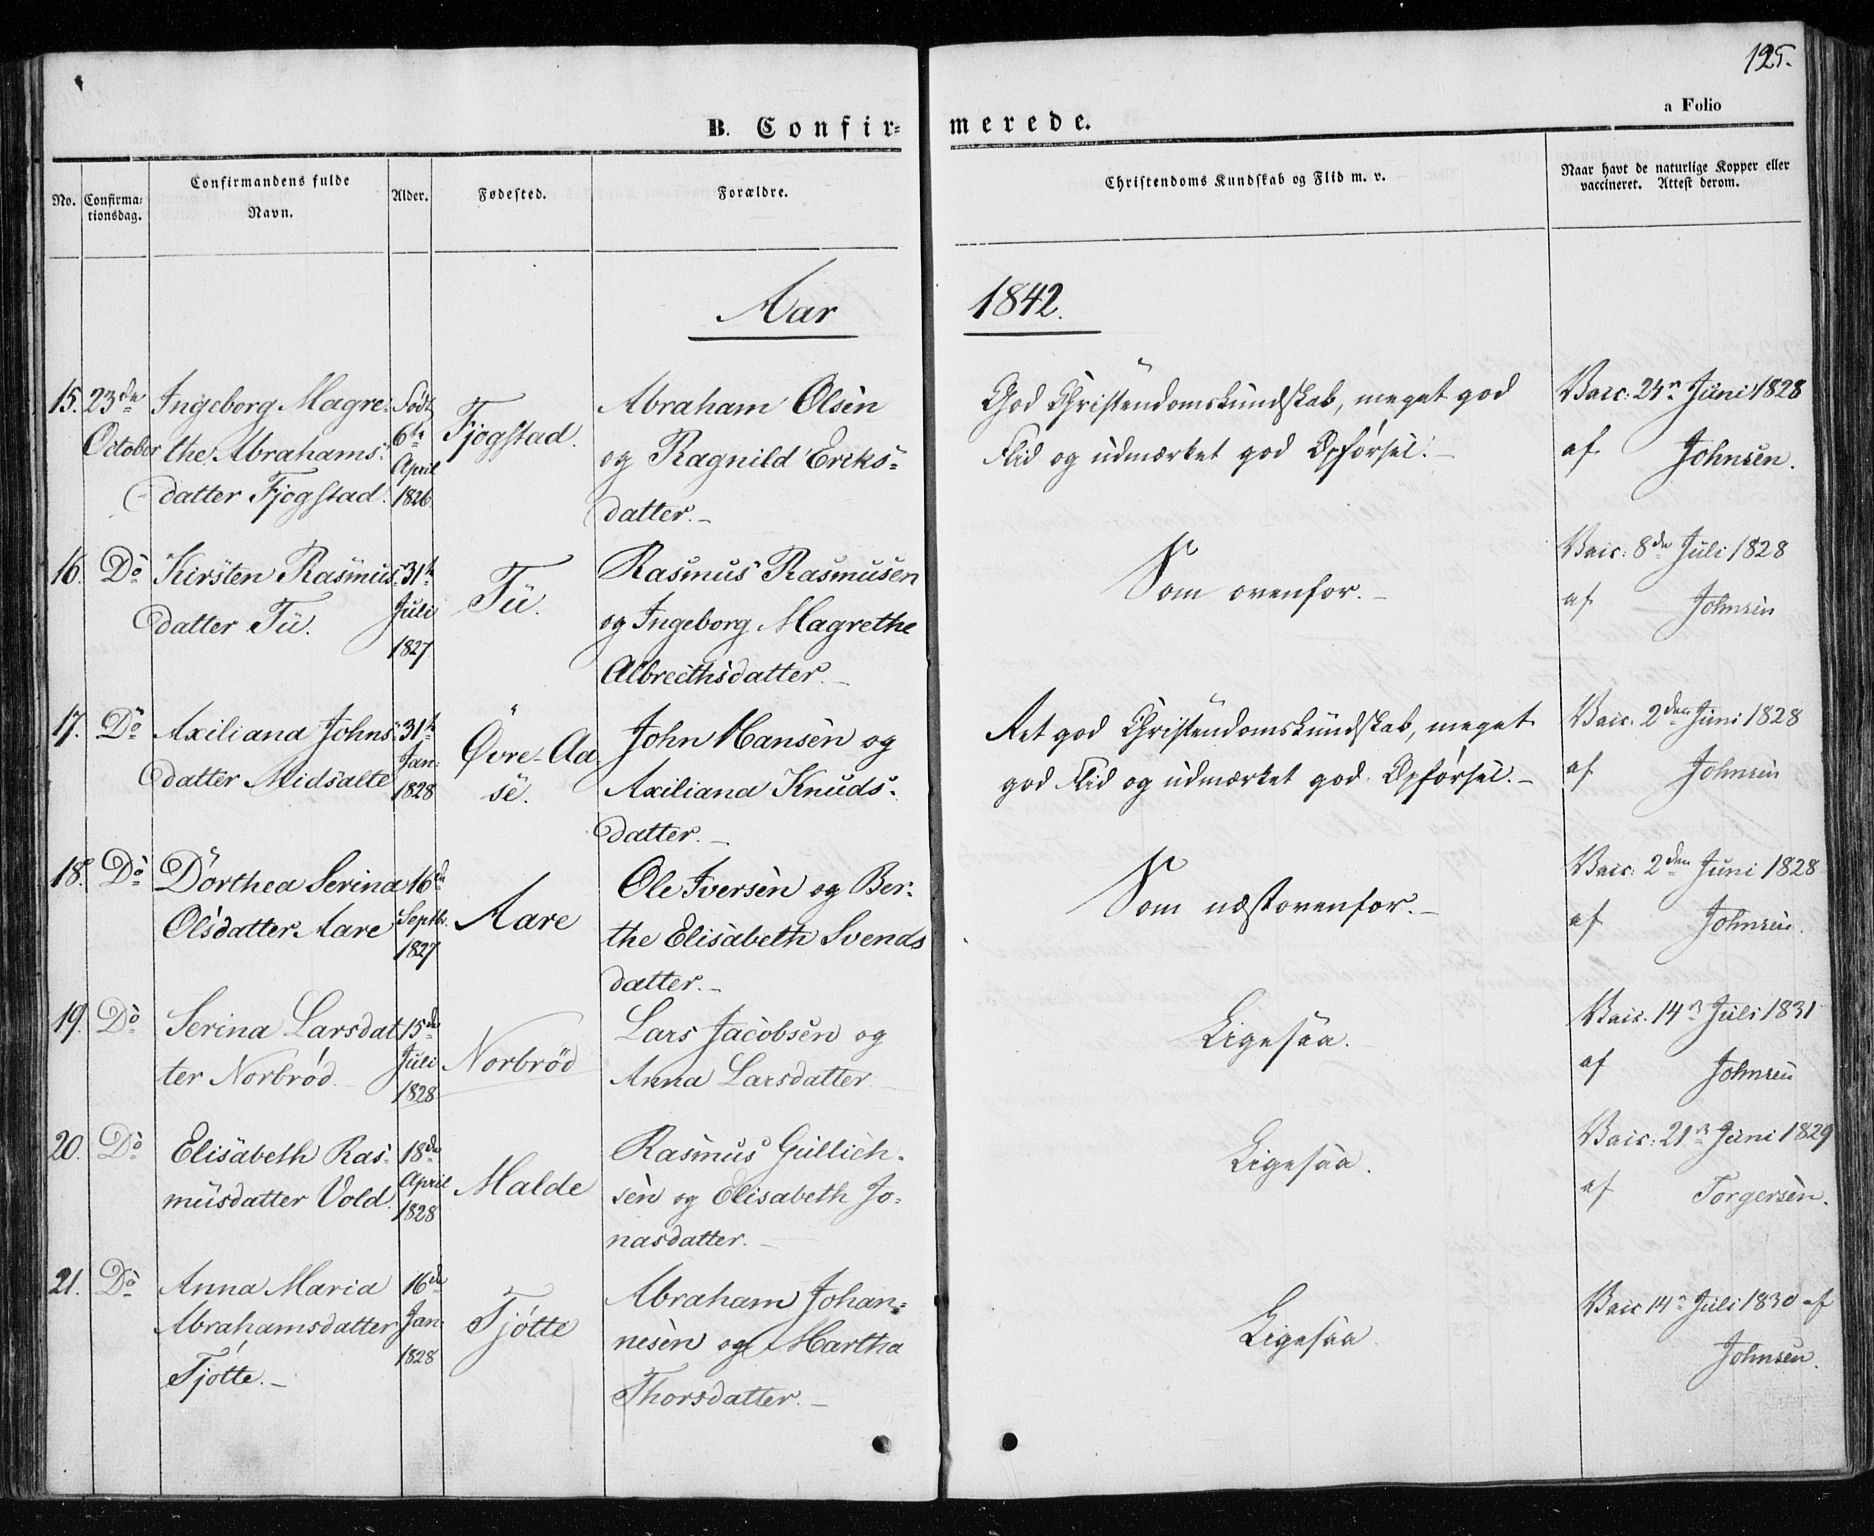 125.
a Folio
B. Confir=
merede.
No.
Confirma=
tionsdag.
Confirmandens fulde
Navn.
Alder.
Fødested.
Forældre.
Christendoms Kundskab og Flid m. v.
Naar havt de naturlige Kopper eller
vaccineret. Attest derom.
Aar
1842.
15.
23de
October
Ingeborg Magre-
the Abrahams-
datter Fjogstad.
Født
6te
April
1826
Fjogstad.
Abraham Olsen
og Ragnild Ericks-
datter.
God Christendomskundskab, meget god
Flid og udmærket god Opførsel.
Vacc: 24n Juni 1828
af Johnsen.
16.
Do
Kirsten Rasmus-
datter Tü.
31te
Juli
1827
Tü.
Rasmus Rasmusen
og Ingeborg Magrethe
Albrecthsdatter.
Som ovenfor.
Vacc: 8de Juli 1828
af Johnsen
17.
Do
Axiliana Johns-
datter Midsalte
31te
Jan:
1828
Øvre-Aa
se.
John Hansen og
Axiliana Knuds-
datter.
Ret god Christendomskundskab, meget
god Flid og udmærket god Opførsel.
Vacc. 2den Juni 1828
af Johnsen
18.
Do
Dorthea Serina
Olsdatter Aare
16de
Septbr.
1827
Aare
Ole Iversen og Ber-
the Elisabeth Svends
datter.
Som næstovenfor.
Vacc: 2den Juni 1828
af Johnsen.
19.
Do
Serina Larsdat
ter Norbrød
15de
Juli
1828
Norbrød
Lars Jacobsen og
Anna Larsdatter
Ligesaa.
Vacc. 14n Juli 1831
af Johnsen
20.
Do
Elisabeth Ras-
musdatter Vold.
18de
April
1828
Malde
Rasmus Gullich-
sen og Elisabeth Jo-
nasdatter.
Ligesaa.
Vacc: 21n Juni 1829
af Torgersen.
21.
Do
Anna Maria
Abrahamsdatter
Tjøtte.
16de
Jan.
1828
Tjøtte
Abraham Johan-
nesen og Martha
Thorsdatter.
Ligesaa.
Vacc 14n Juli 1830 af
Johnsen.